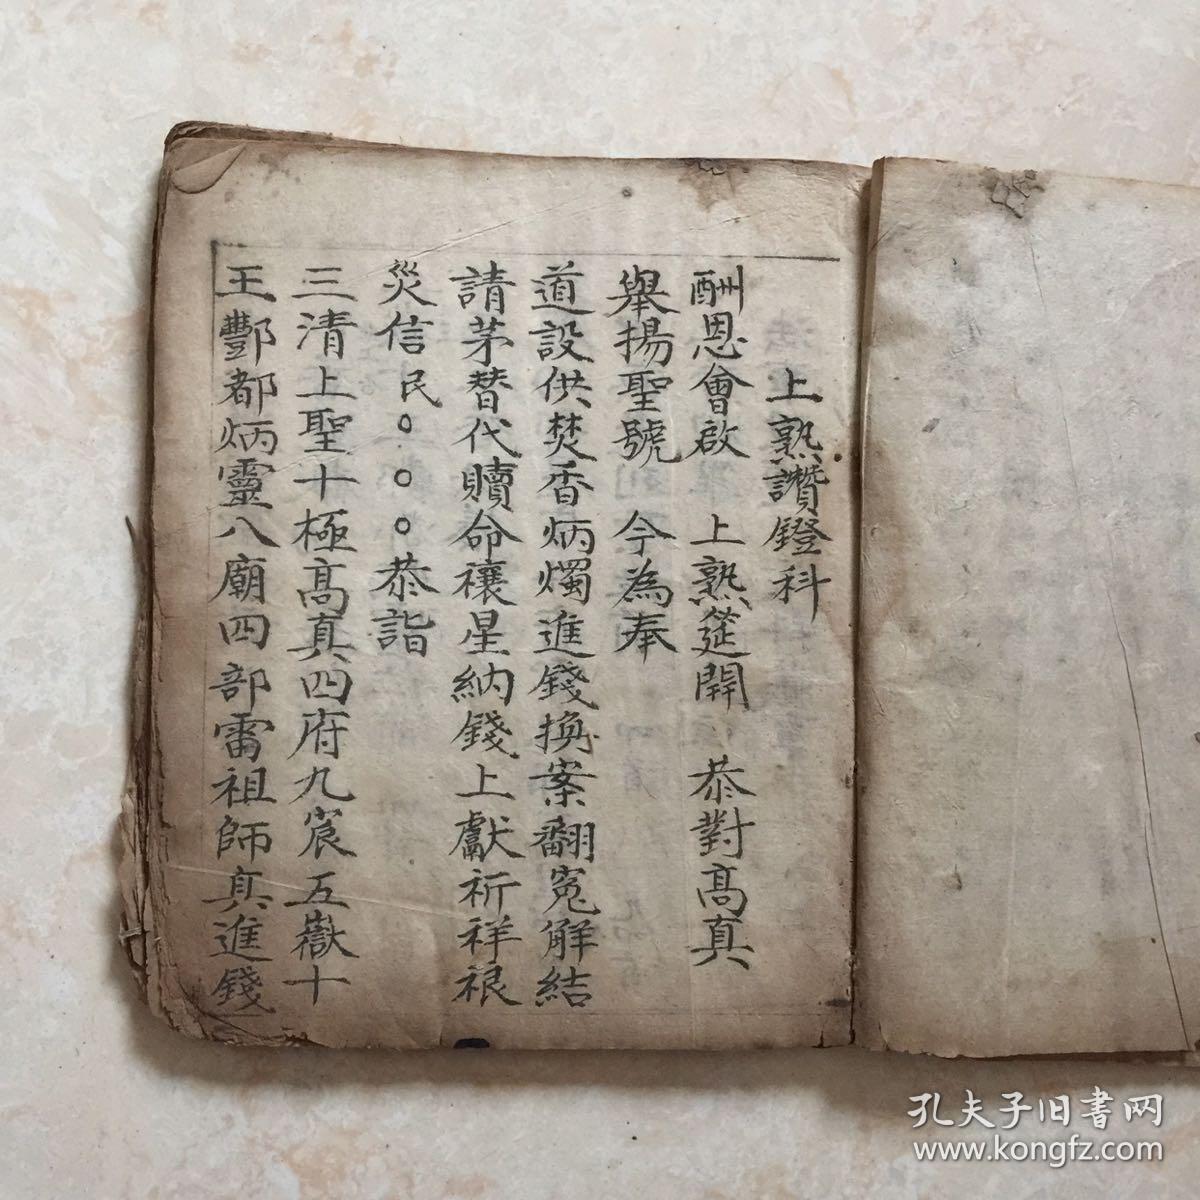 上熟讚鐙科
酬恩會啟　上熟筵開　恭對高真
舉揚聖號　今為奉
道設供焚香炳燭進錢換案翻冤解結
請茅替代贖命禳星納錢上獻祈祥
災信民○○○恭詣
三清上聖十極高真四府九宸五嶽十
王酆都炳靈八廟四部雷祖師真進錢
孔夫子旧书网
www.kongfz.com